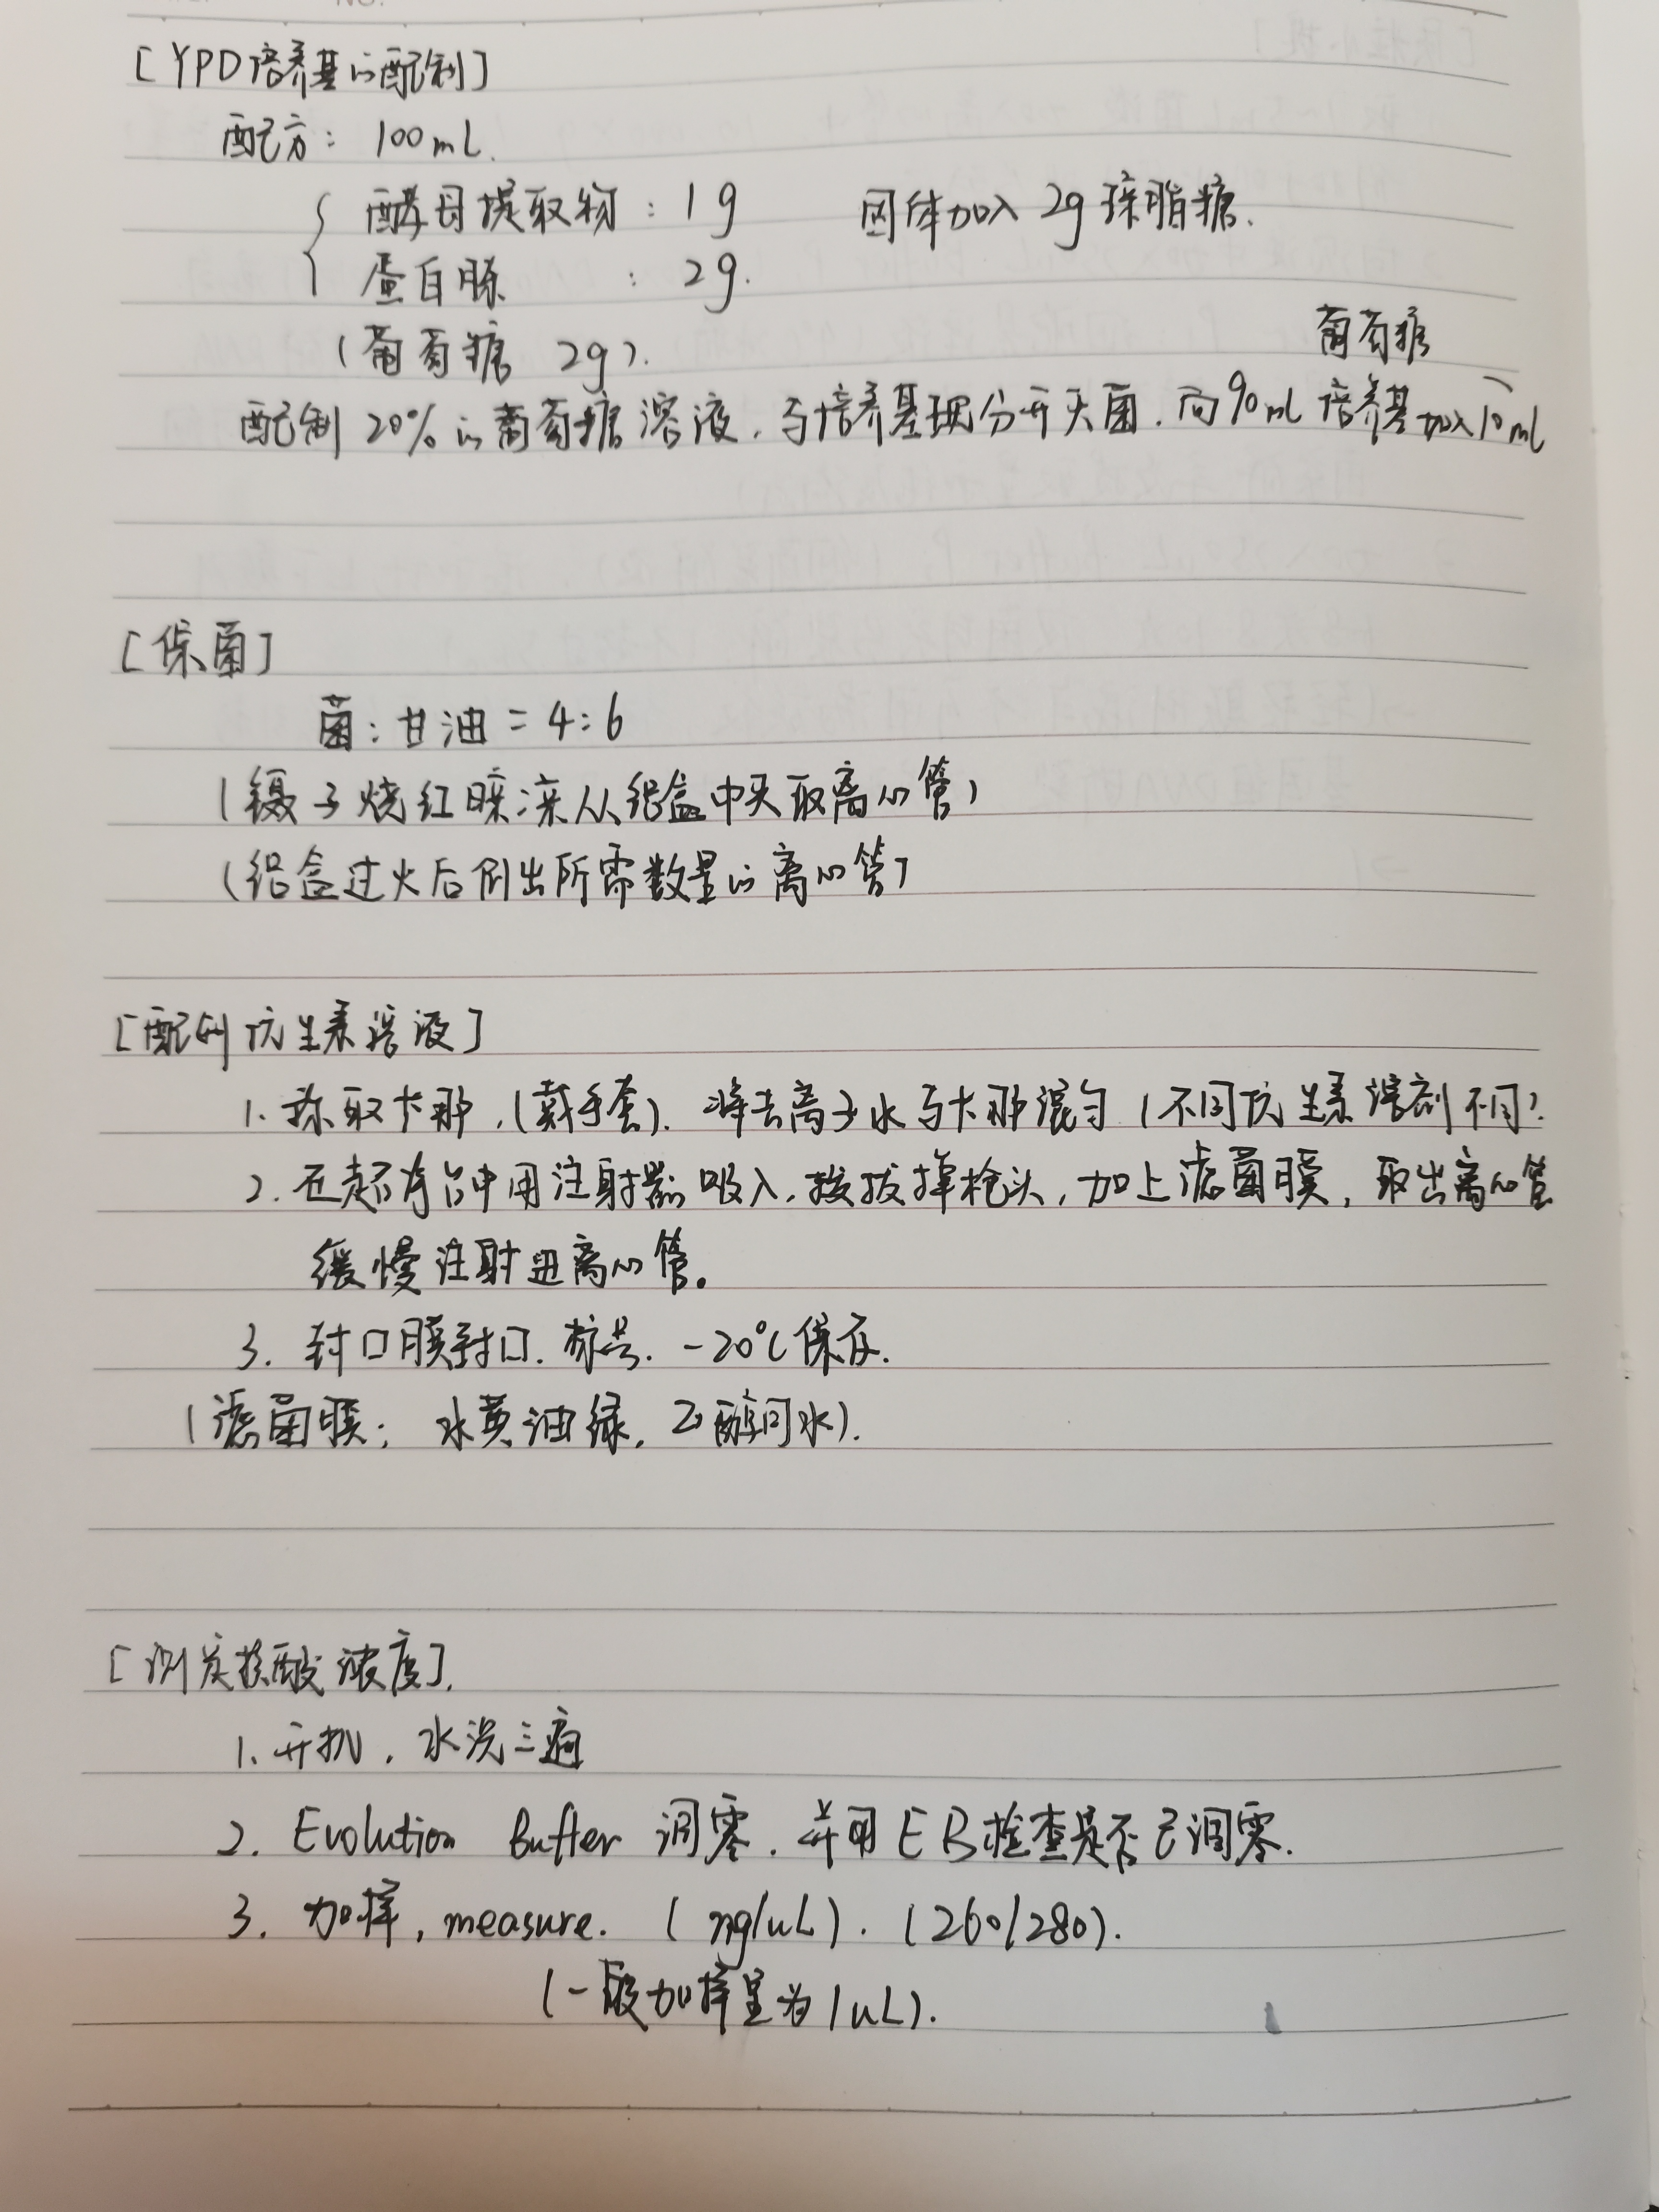 [YPD培养基的配制]
配方: 100mL.
酵母提取物: 1g 固体加入 2g 琼脂糖.
蛋白胨 : 2g.
(葡萄糖 2g).
葡萄糖
配制 20%的葡萄糖溶液, 与培养基分开灭菌. 向90mL 培养基加入10mL
[保菌]
菌: 甘油 = 4:6
(镊子烧红晾凉从铝盒中夹取离心管)
(铝盒过火后倒出所需数量的离心管)
[配制抗生素溶液]
1. 称取卡那, (戴手套). 将去离子水与卡那混匀 (不同抗生素溶剂不同).
2. 在超净台中用注射器吸入, 拔掉枪头, 加上滤菌膜, 取出离心管
缓慢注射进离心管。
3. 封口膜封口. 标号. -20℃保存.
(滤菌膜: 水黄油绿, 乙醇同水).
[测定核酸浓度].
1. 开机, 水洗三遍
2. Evolution Buffer 调零. 并用EB检查是否已调零.
3. 加样, measure. (ng/uL). (260/280).
(一般加样量为1uL).